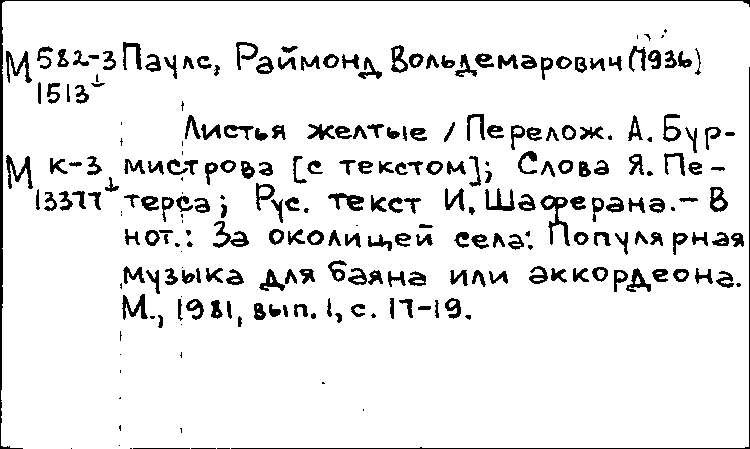 М 582-3 Паулс, Раймонд Вольдемарович (1936)
1513
Листья желтые / Перелож. А. Бур-
М К-3 мистрова [с текстом]; Слова Я. Пе-
13377 терса; Рус. текст И. Шаферана. – В
нот.: За околицей села: Популярная
музыка для баяна или аккордеона.
М., 1981, вып. 1, с. 17-19.